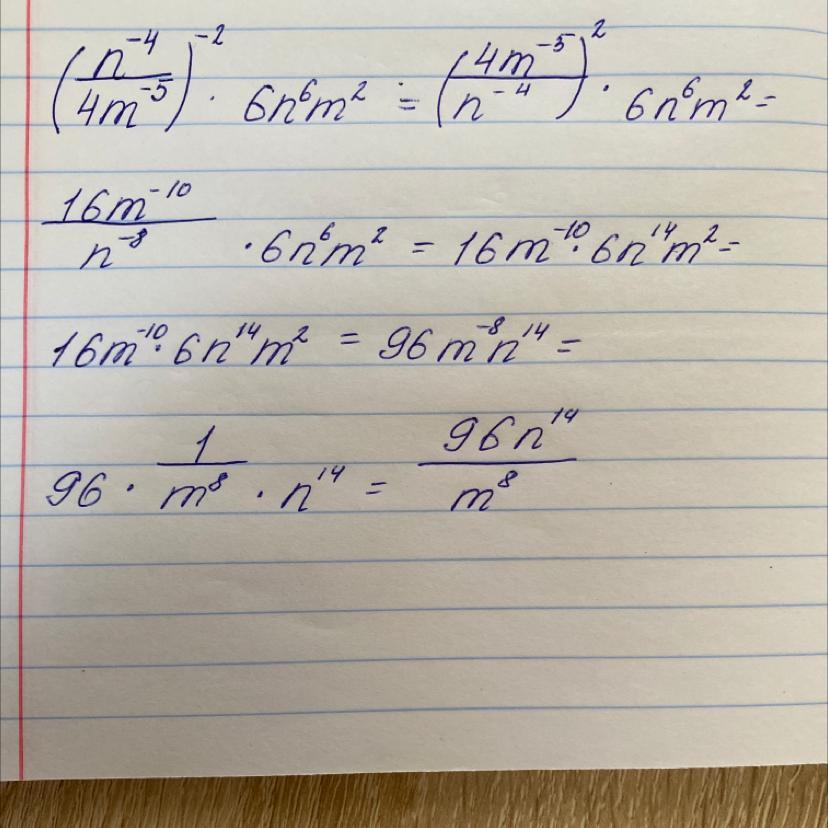 (n⁻⁴/4m⁻⁵)⁻² · 6n⁶m² = (4m⁻⁵/n⁻⁴)² · 6n⁶m² =
16m⁻¹⁰/n⁻⁸ · 6n⁶m² = 16m⁻¹⁰ · 6n¹⁴m² =
16m⁻¹⁰ · 6n¹⁴m² = 96m⁻⁸n¹⁴ =
96 · 1/m⁸ · n¹⁴ = 96n¹⁴/m⁸